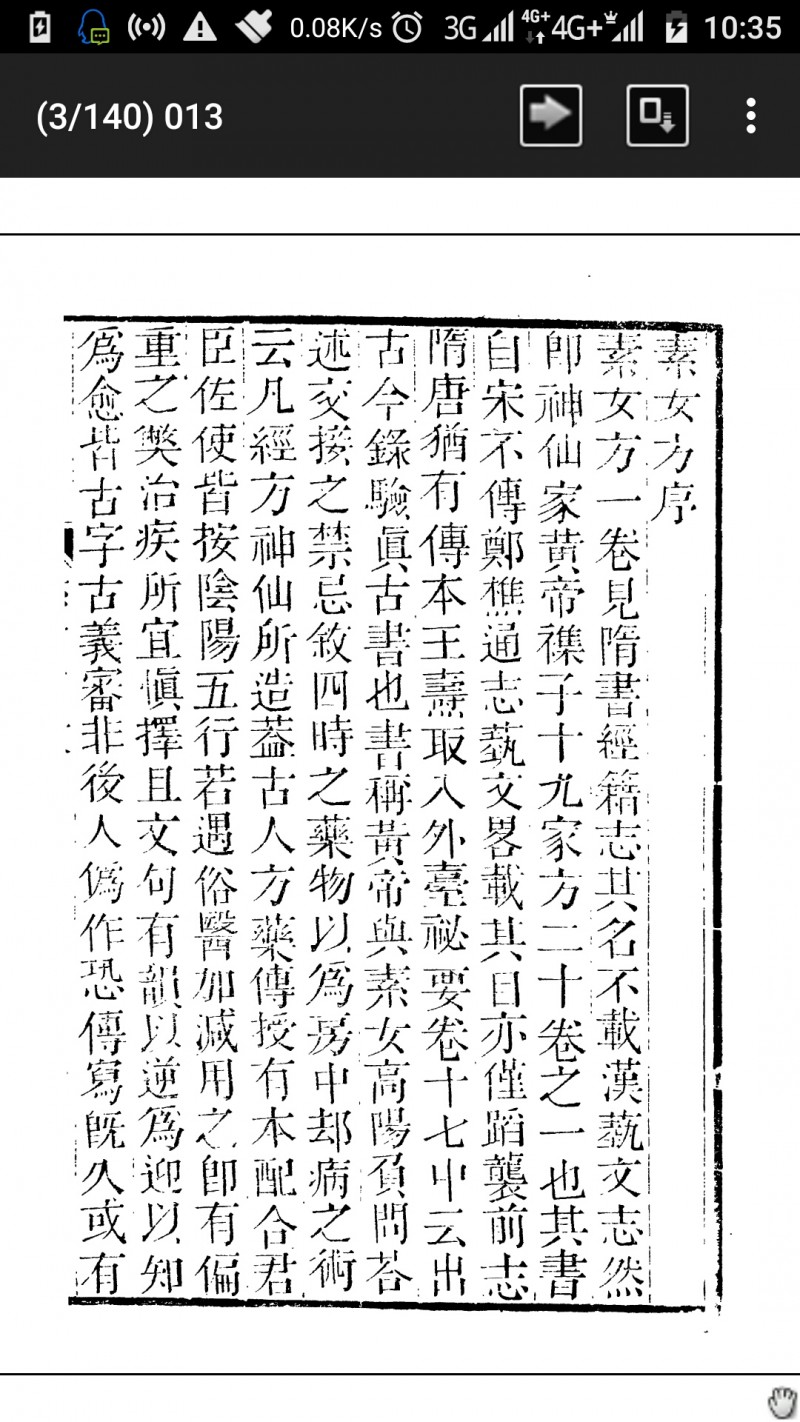 0.08K/s 3G 4G+ 4G+ 10:35
(3/140) 013
素女方序
素女方一卷見隋書經籍志其名不載漢藝文志然
卽神仙家黃帝襍子十九家方二十卷之一也其書
自宋不傳鄭樵通志藝文畧載其目亦僅蹈襲前志
隋唐猶有傳本王燾取入外臺祕要卷十七中云出
古今錄驗眞古書也書稱黃帝與素女高陽負問荅
述交接之禁忌敘四時之藥物以爲房中却病之術
云凡經方神仙所造葢古人方藥傳授有本配合君
臣佐使皆按陰陽五行若遇俗醫加減用之卽有偏
重之獘治疾所宜愼擇且文句有韻以逆爲迎以知
爲愈皆古字古義審非後人僞作恐傳寫旣久或有